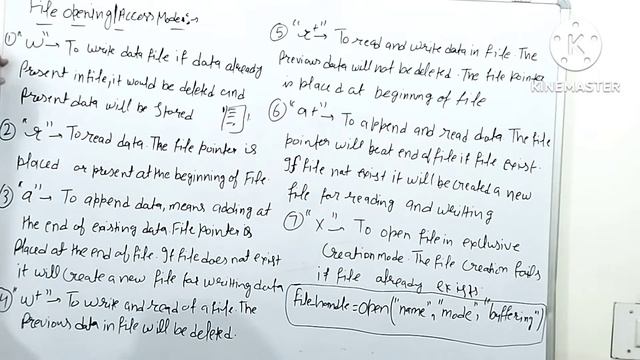 File opening/Access Modes:-
① "w" → To write data file if data already
present in file, it would be deleted and
present data will be stored
② "r" → To read data. The file pointer is
placed or present at the beginning of file.
③ "a" → To append data, means adding at
the end of existing data. File pointer is
placed at the end of file. If file does not exist
it will create a new file for writting data
④ "w+" → To write and read of a file. The
previous data in file will be deleted.
⑤ "r+" → To read and write data in file. The
previous data will not be deleted. The file pointer
is placed at beginning of file
⑥ "a+" → To append and read data The file
pointer will be at end of file if file exist.
If file not exist it will be created a new
file for reading and writting
⑦ "x" → To open file in exclusive
creation mode. The file creation fails
if file already exists
file handle = open("name", "mode", "buffering")
KINEMASTER